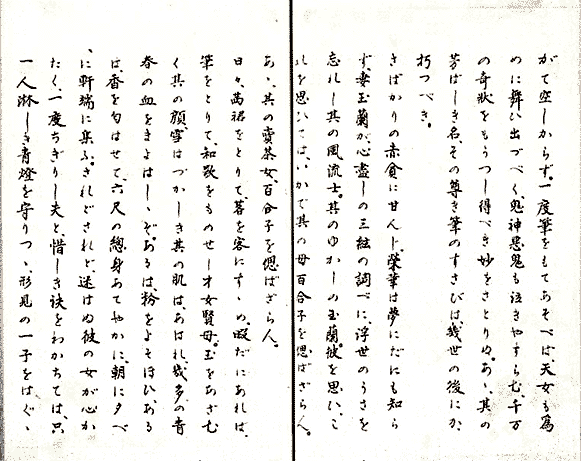 がて空しからず。一度筆をもてあそべば、天女も為
めに舞ひ出づべく、鬼神悪鬼も泣きやすらむ、千万
の奇状をもうつし得べき妙をさとりぬ。あゝ、其の
芳ばしき名、その尊き筆のすさびは、幾世の後にか、
朽つべき。
さばかりの赤貧に甘んじ、栄華は夢にだにも知ら
ず、妻玉蘭が、心盡しの三絃の調べに、浮世のうさを
忘れし其の風流士。其のゆかしの玉蘭。彼を思ひ、こ
れを思いては、いかで其の母百合子を偲ばざらん。
あゝ、其の賣茶女、百合子を偲ばざらん。
日々、茜裙をとりて、茗を客にすゝめ、暇だにあれば、
筆をとりて、和歌をものせし才女賢母。玉をあざむ
く其の顔、雪はづかしき其の肌は、あはれ、幾多の青
春の血をまよはしゝぞ。あるは、粉をよそほひ、ある
は、香を匂はせて、六尺の總身あてやかに、朝に夕べ
に軒端に集る。されどされど、迷はぬ彼の女が心か
たく、一度ちぎりし夫と、惜しき袂をわかちては、只
一人淋しき青燈を守りつゝ、形見の一子をはぐゝ